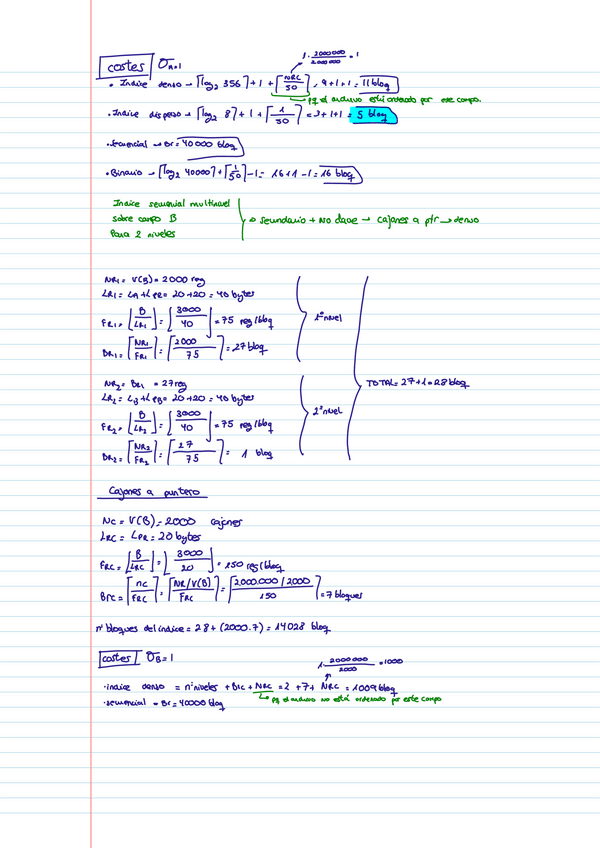 1 · 2000000 / 2000000 = 1
costes σA=1
• Indice denso → ⌈log2 356⌉ + 1 + ⌈NRC / 50⌉ = 9+1+1 = 11 bloq
↳ pq el archivo está ordenado por este campo.
• Indice disperso → ⌈log2 8⌉ + 1 + ⌈1 / 50⌉ = 3+1+1 = 5 bloq
• Secuencial → Br = 40000 bloq
• Binario → ⌈log2 40000⌉ + ⌈1 / 50⌉ - 1 = 16+1 -1 = 16 bloq
Indice secuencial multinivel
sobre campo B → secundario + no clave → cajones a ptr → denso
Para 2 niveles
NR1 = V(B) = 2000 reg
LR1 = LA + LPR = 20+20 = 40 bytes
FR1 = ⌊B / LR1⌋ = ⌊3000 / 40⌋ = 75 reg/bloq 1er nivel
BR1 = ⌈NR1 / FR1⌉ = ⌈2000 / 75⌉ = 27 bloq
NR2 = BR1 = 27 reg TOTAL = 27+1 = 28 bloq
LR2 = LB + LPB = 20+20 = 40 bytes
FR2 = ⌊B / LR2⌋ = ⌊3000 / 40⌋ = 75 reg/bloq 2º nivel
BR2 = ⌈NR2 / FR2⌉ = ⌈27 / 75⌉ = 1 bloq
Cajones a puntero
NC = V(B) = 2000 cajones
LRC = LPR = 20 bytes
FRC = ⌊B / LRC⌋ = ⌊3000 / 20⌋ = 150 reg/bloq
BFC = ⌈nc / FRC⌉ = ⌈NR/V(B) / FRC⌉ = ⌈2000.000 / 2000 / 150⌉ = 7 bloques
nº bloques del indice = 28 + (2000.7) = 14028 bloq
costes σB=1
1 · 2000000 / 2000 = 1000
• indice denso = nº niveles + BIC + NRC = 2 + 7 + NRC = 1009 bloq
↳ pq el archivo no está ordenado por este campo
• secuencial = Br = 40000 bloq